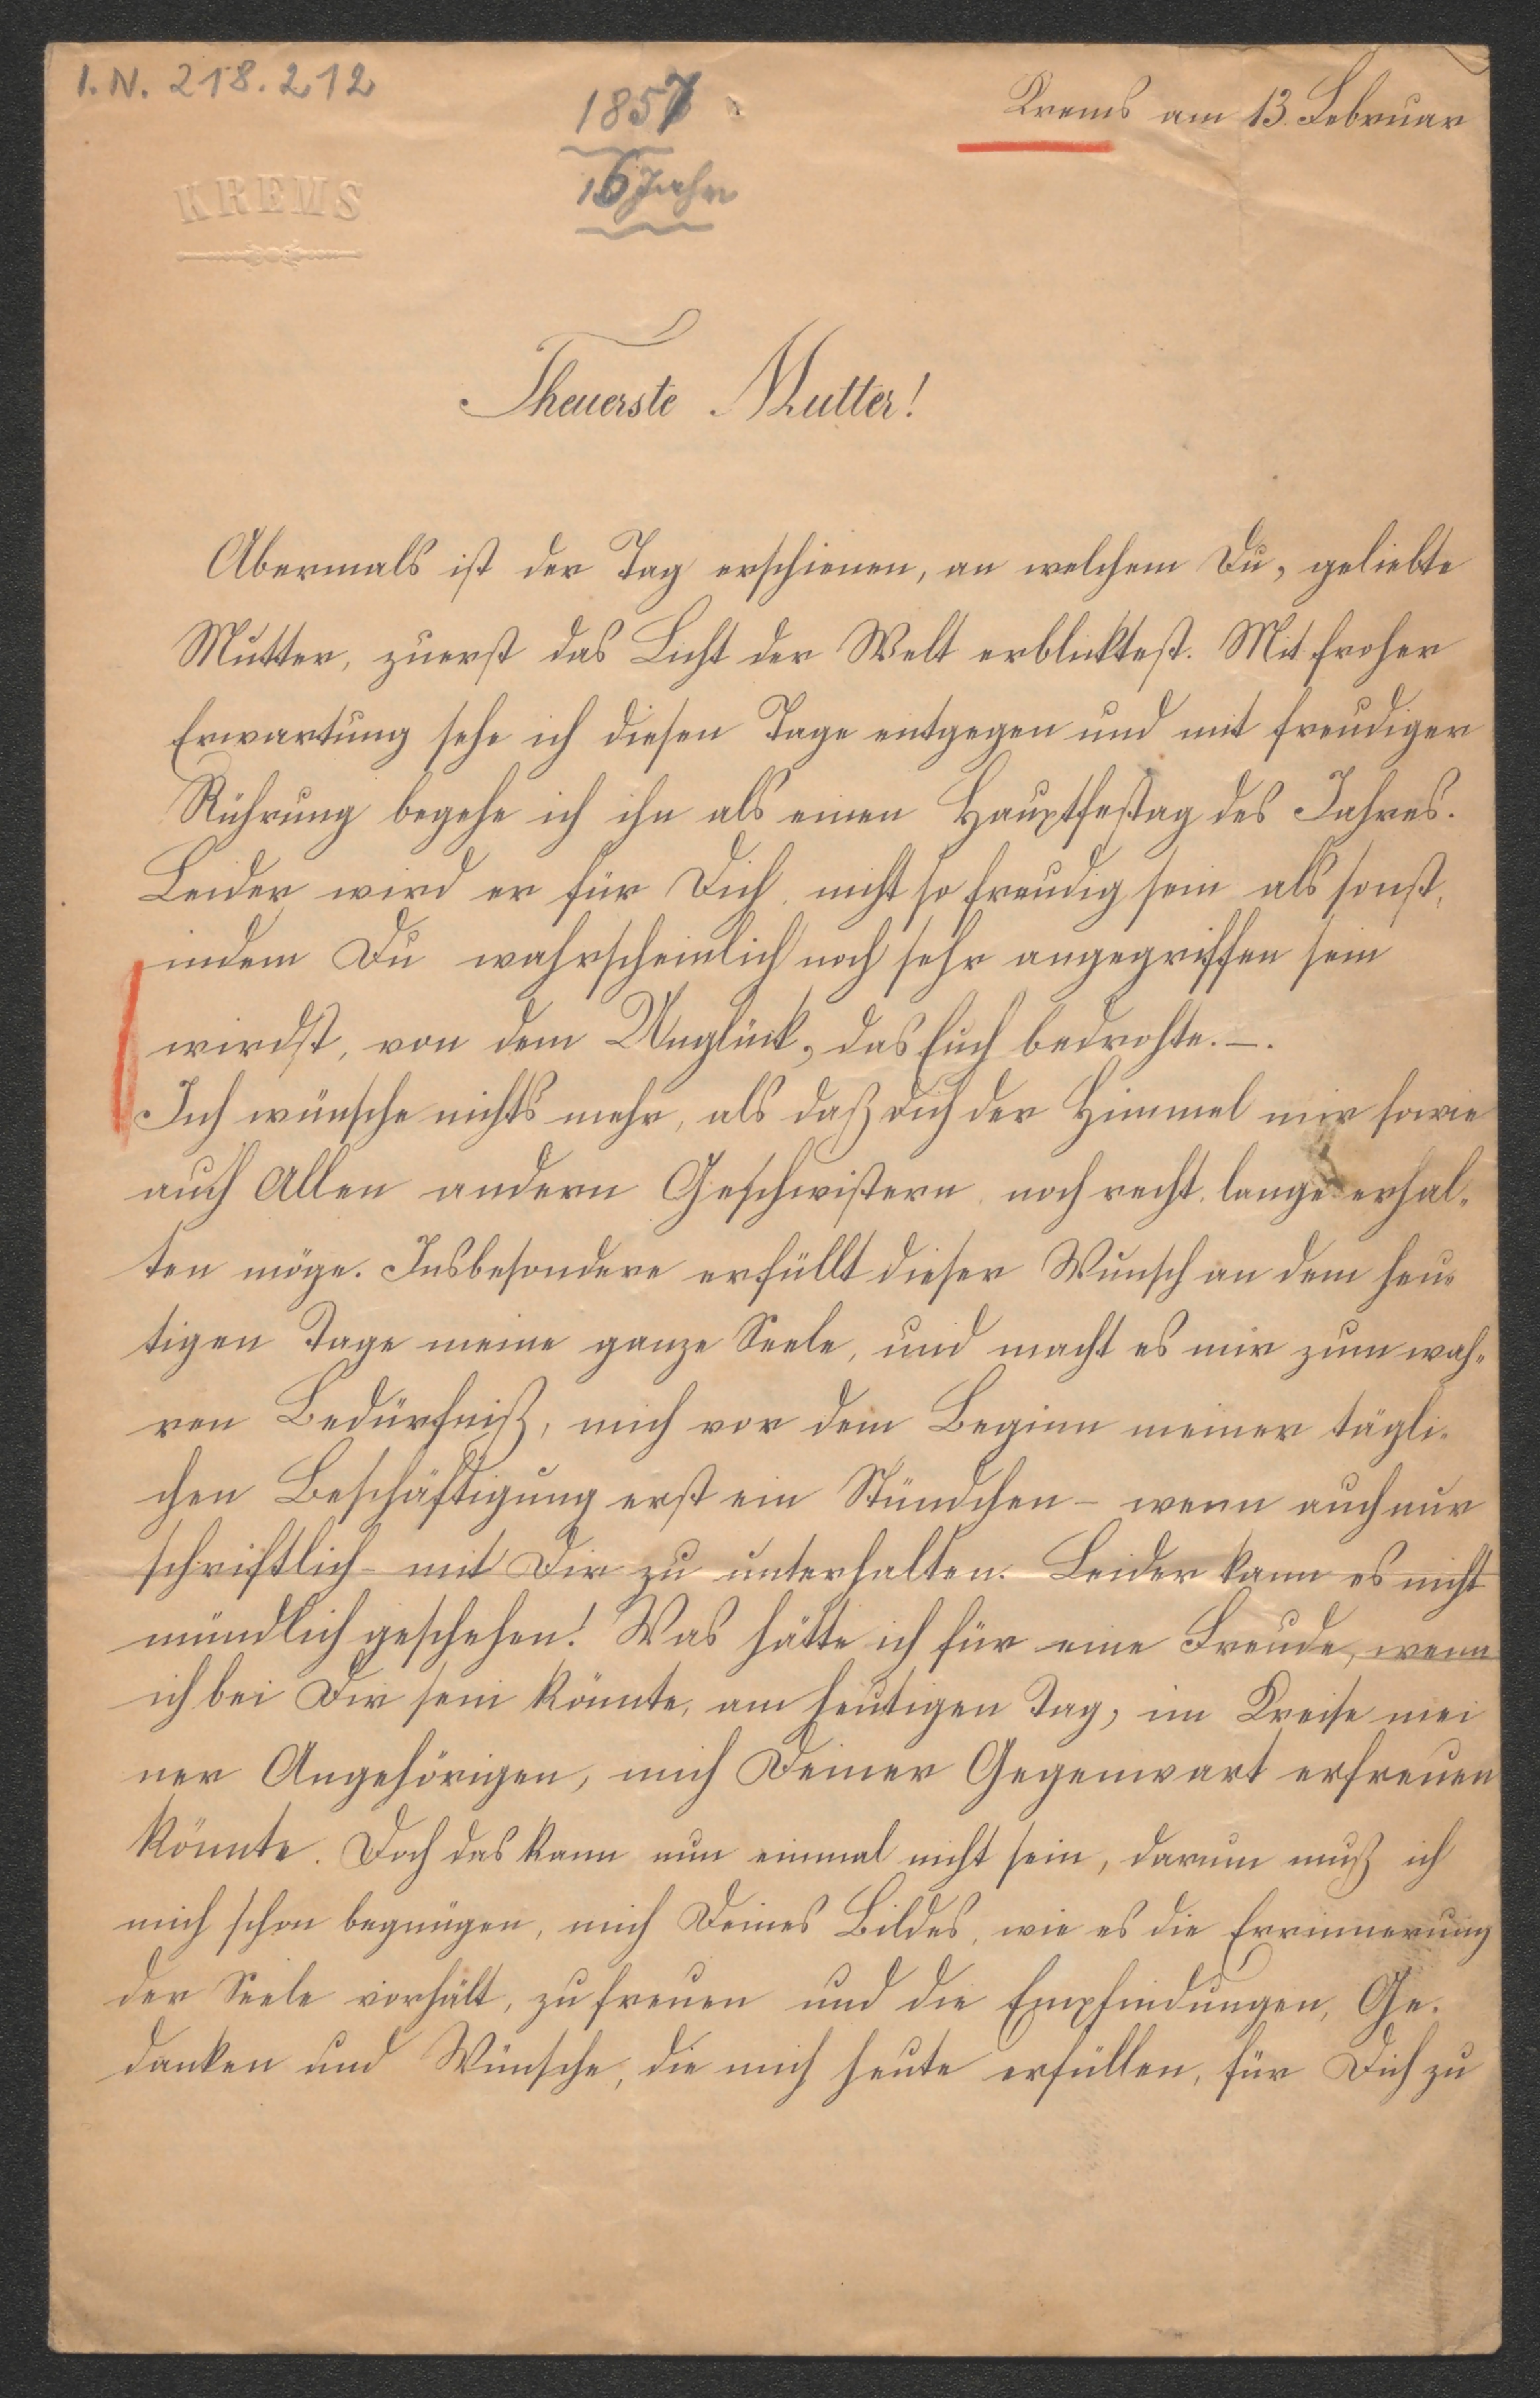 I.N. 218.212
1857
16 Jahr
Krems am 13. Februar
KREMS
Theuerste Mutter!
Abermals ist der Tag erschienen, an welchem Du, geliebte
Mutter, zuerst das Licht der Welt erblicktest. Mit froher
Erwartung sehe ich diesen Tage entgegen und mit freudiger
Rührung begehe ich ihn als einen Hauptfestag des Jahres.
Leider wird er für Dich nicht so freudig sein als sonst,
indem Du wahrscheinlich noch sehr angegriffen sein
wirdst, von dem Unglück, das Euch bedrohte. –.
Ich wünsche nichts mehr, als daß dich der Himmel mir sowie
auch Allen andern Geschwistern noch recht lange erhal-
ten möge. Insbesondere erfüllt dieser Wunsch an dem heu-
tigen Tage meine ganze Seele, und macht es mir zum wah-
ren Bedürfniß, mich vor dem Beginn meiner tägli-
chen Beschäftigung erst ein Stündchen – wenn auch nur
schriftlich – mit Dir zu unterhalten. Leider kann es nicht
mündlich geschehen! Was hätte ich für eine Freude, wenn
ich bei Dir sein könnte, am heutigen Tag, im Kreise mei
ner Angehörigen, mich Deiner Gegenwart erfreuen
könnte. Doch das kann nun einmal nicht sein, darum muß ich
mich schon begnügen, mich Deines Bildes, wie es die Errinnerung
der Seele vorhält, zu freuen und die Empfindungen, Ge-
danken und Wünsche, die mich heute erfüllen, für Dich zu